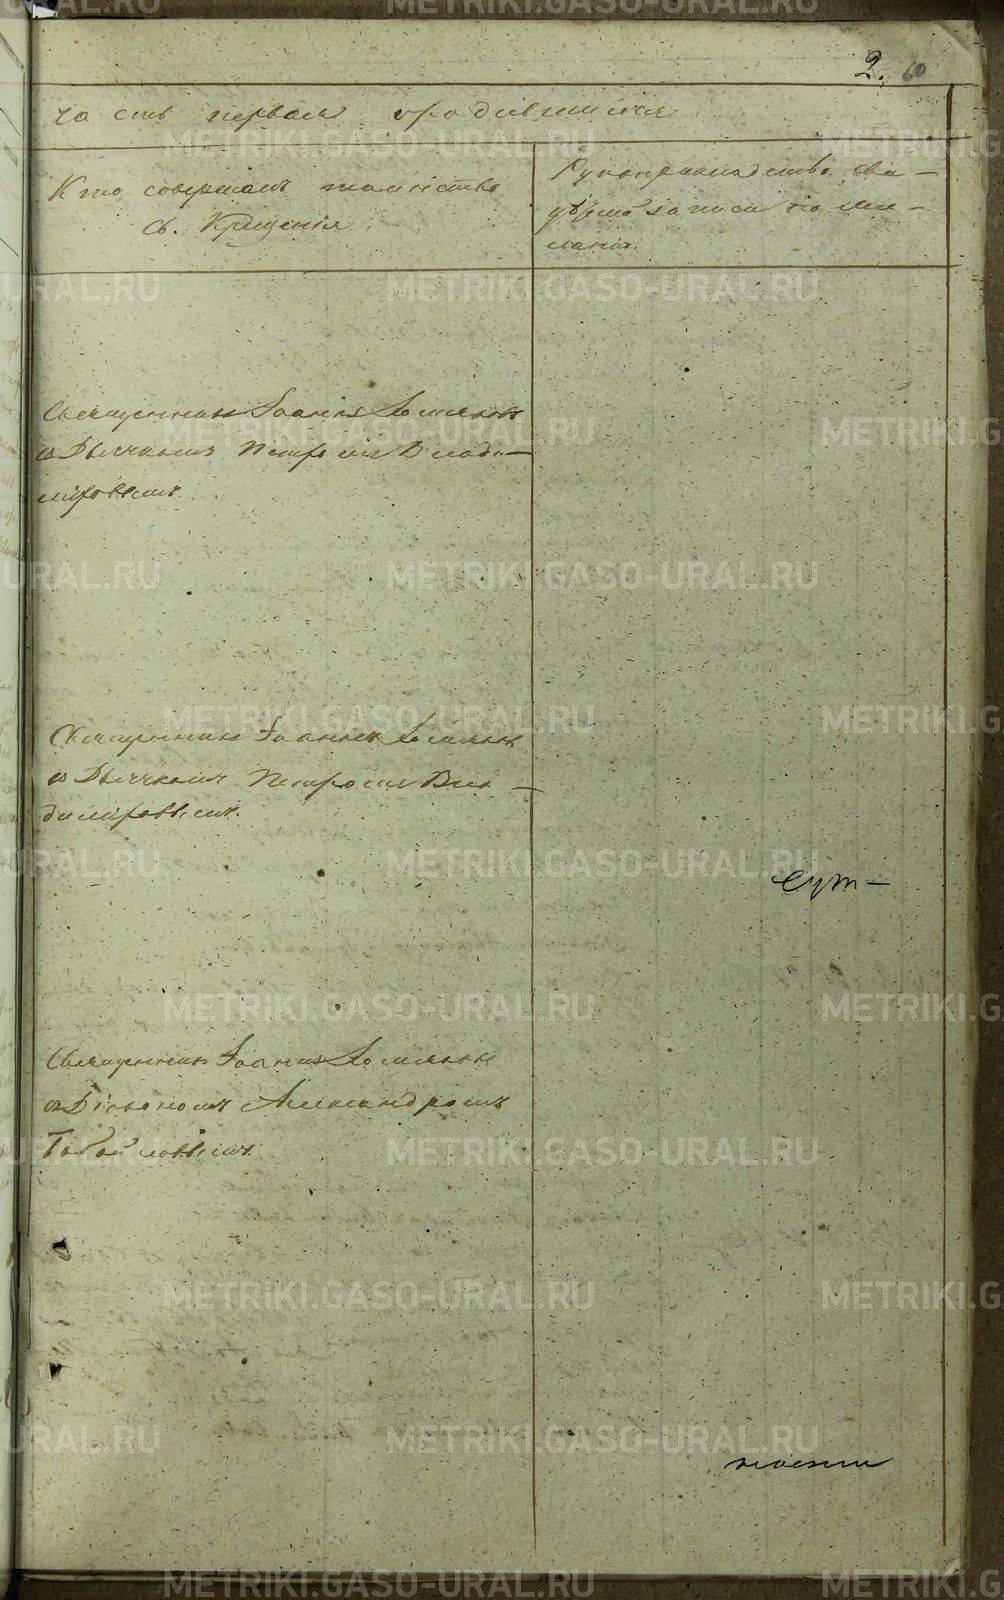 2. 60
часть первая о родившихся
Кто совершалъ таинство
Св. Крещенія
Рукоприкладство сви-
детелей записи по же-
ланію.
Священникъ Іоаннъ Хомяковъ
съ Дьячкомъ Петромъ Влади-
мировымъ.
Священникъ Іоаннъ Хомяковъ
съ Дьячкомъ Петромъ Вла-
димировымъ.
Священникъ Іоаннъ Хомяковъ
съ Дьякономъ Александромъ
METRIKI.GASO-URAL.RU